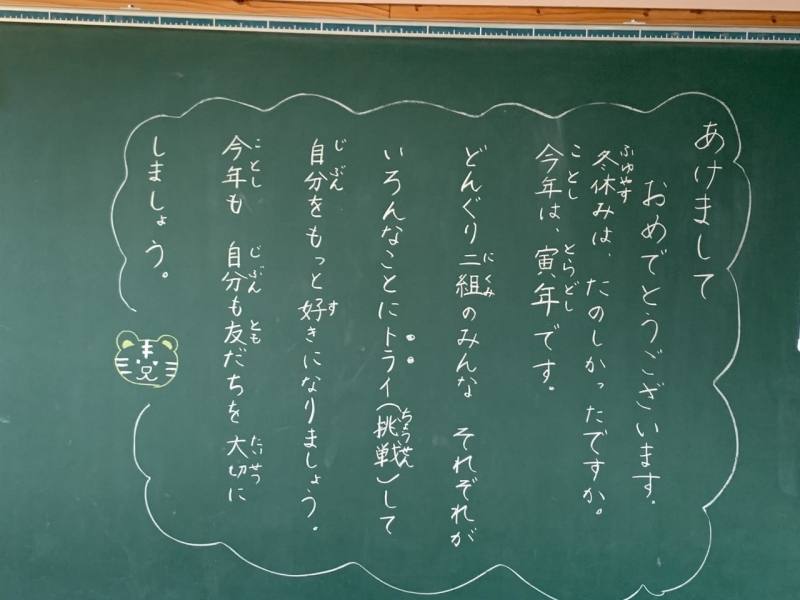 あけまして
おめでとうございます。
冬休みは、たのしかったですか。
ふゆやす
今年は、寅年です。
ことし とらどし
どんぐり二組のみんな それぞれが
にくみ
いろんなことにトライ(挑戦)して
ちょうせん
自分をもっと好きになりましょう。
じぶん す
今年も 自分も友だちを大切に
ことし じぶん とも たいせつ
しましょう。